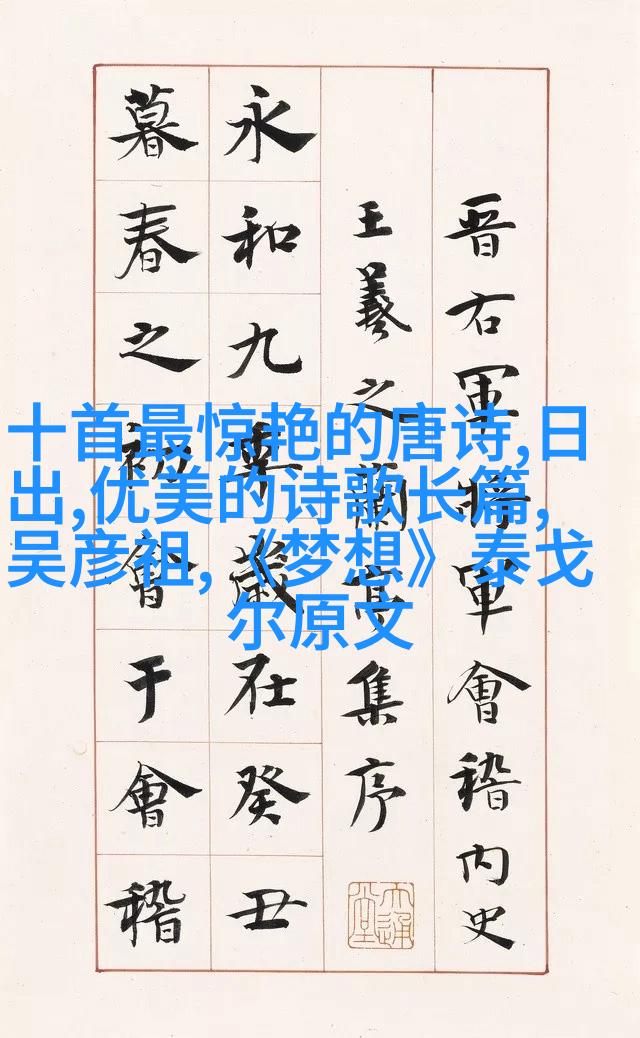 十首最惊艳的唐诗,日
出,优美的诗歌长篇,
吴彦祖,《梦想》泰戈
尔原文
晋右軍將軍會稽内史
王羲之蘭亭集序
永和九年歲在癸丑
暮春之初會于會稽